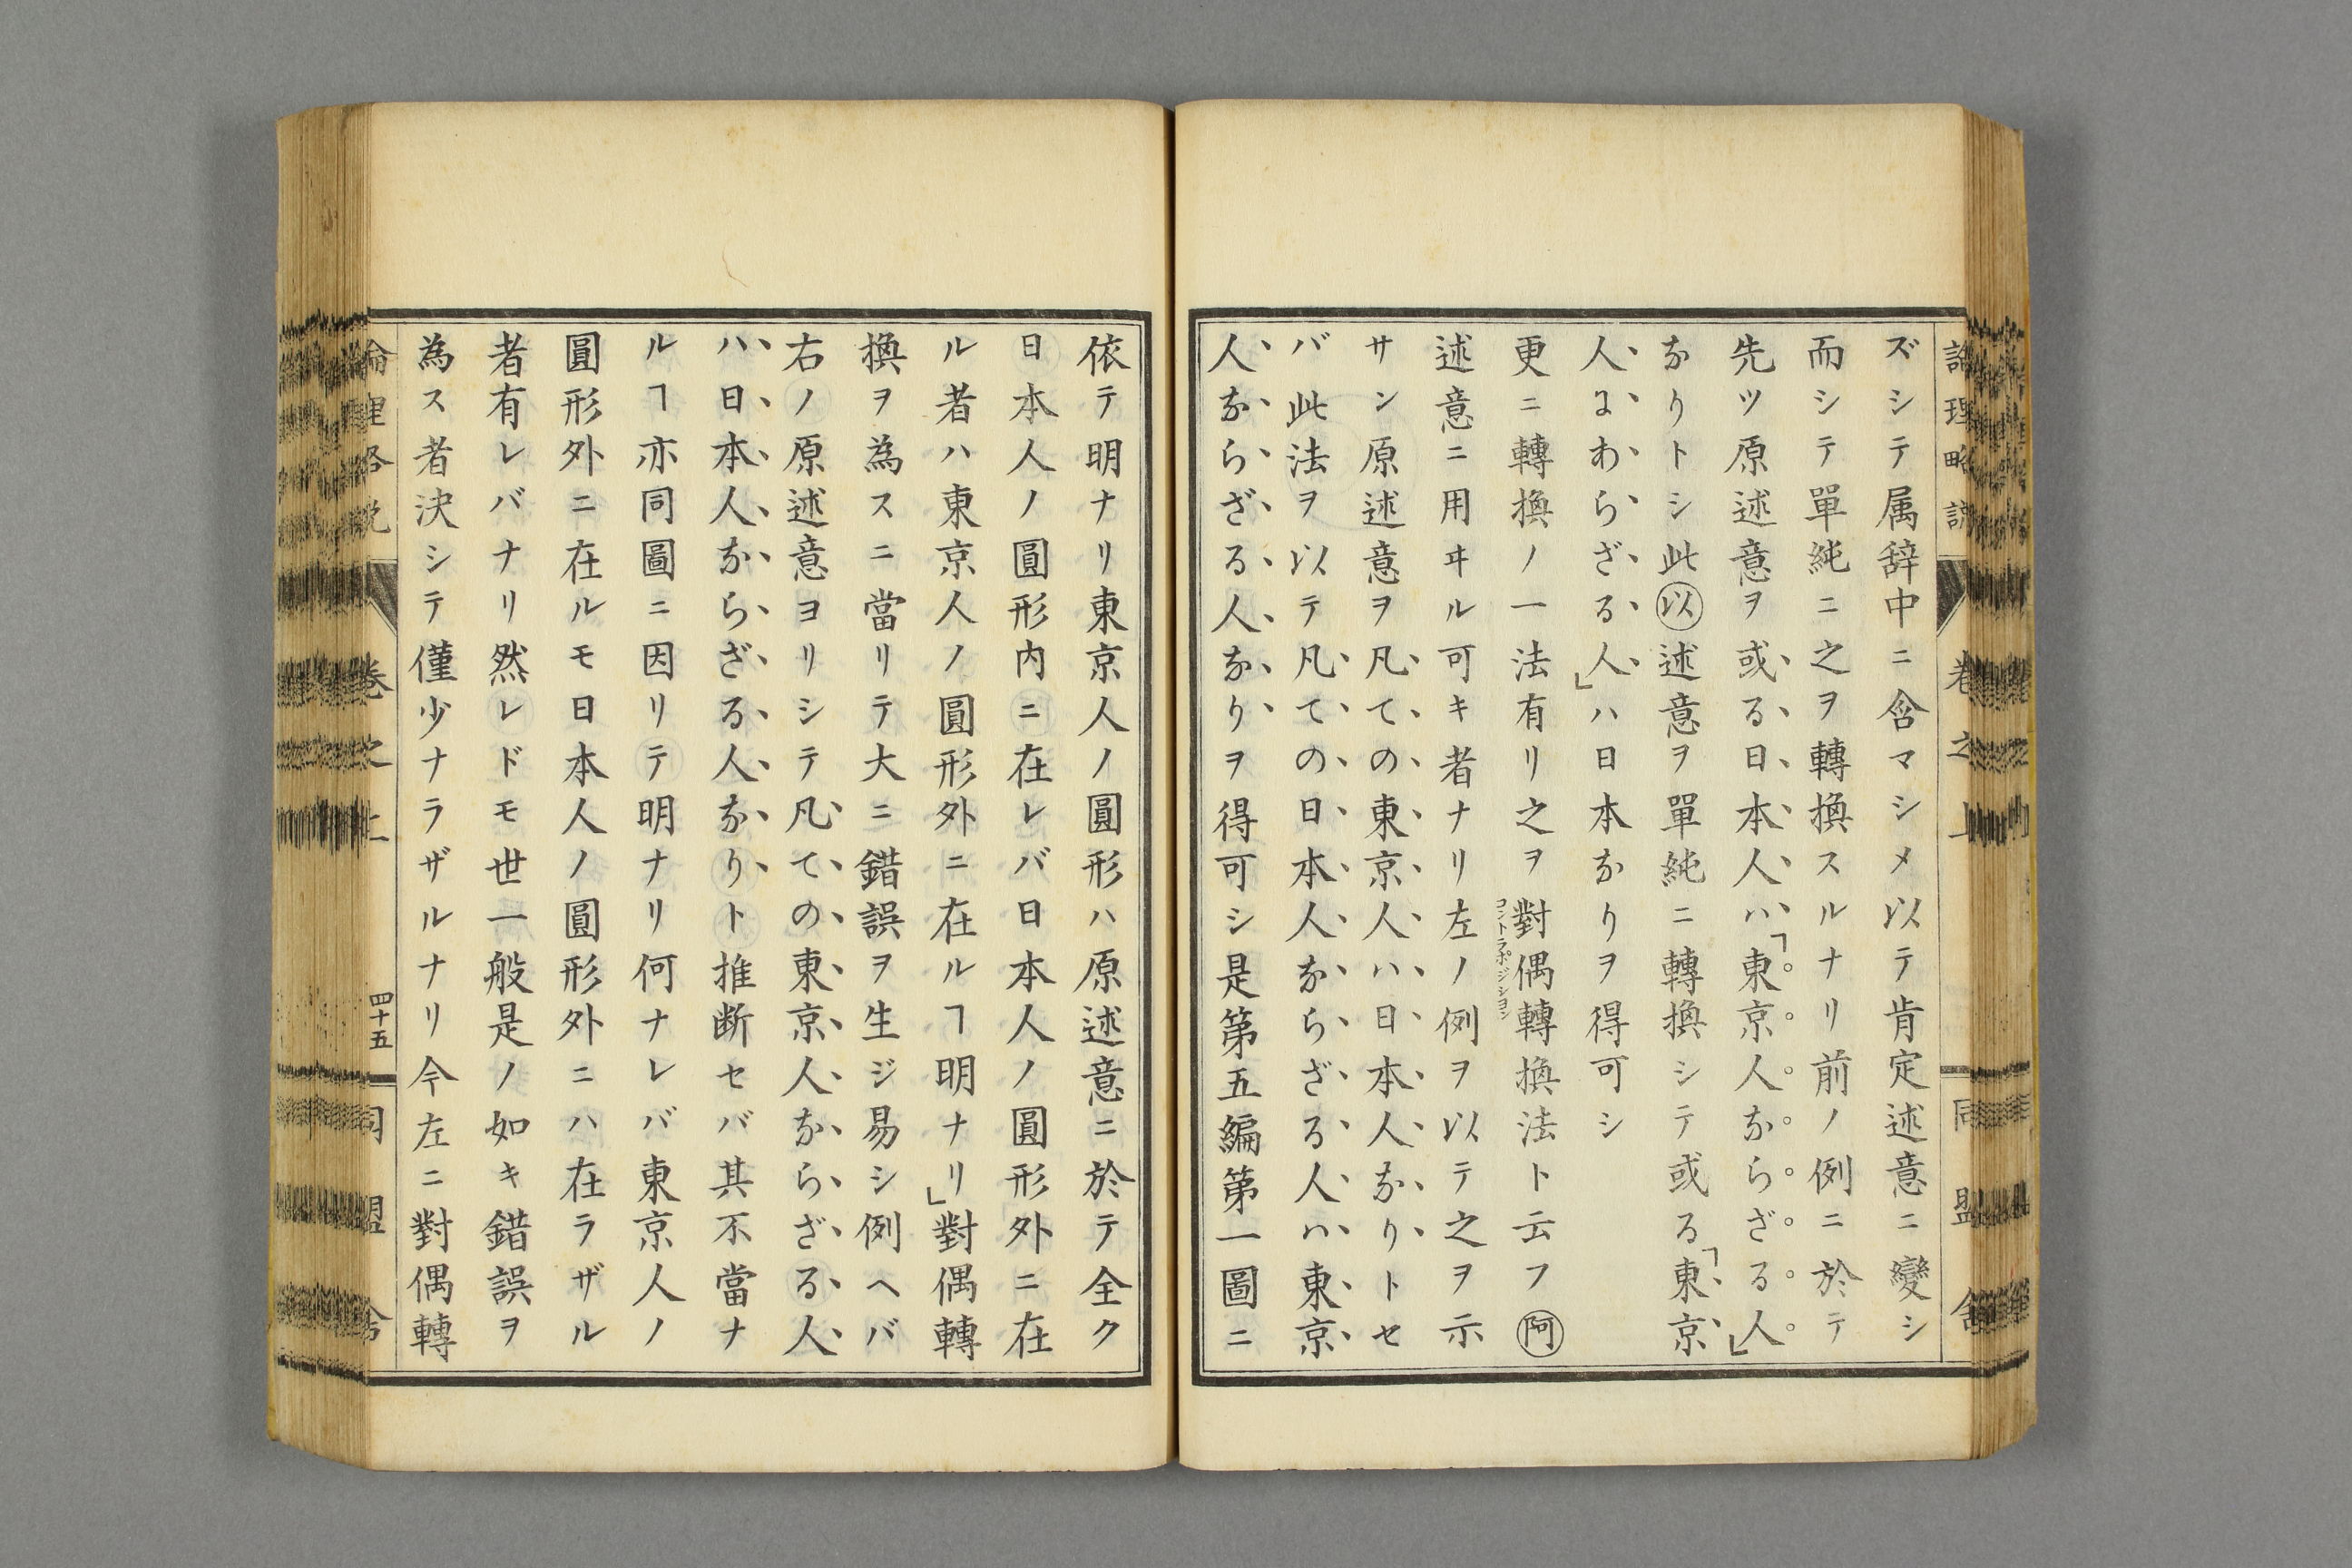 ズシテ属辞中ニ含マシメ以テ肯定述意ニ變シ
而シテ單純ニ之ヲ轉換スルナリ前ノ例ニ於テ
先ツ原述意ヲ或る日本人ハ「東京人ならざる人」
なりトシ此㋑述意ヲ單純ニ轉換シテ或る「東京
人にわらざる人」ハ日本なりヲ得可シ
更ニ轉換ノ一法有リ之ヲ對偶轉換法ト云フ阿
コントラポジシヨン
述意ニ用ヰル可キ者ナリ左ノ例ヲ以テ之ヲ示
サン原述意ヲ凡ての東京人ハ日本人なりトセ
バ此法ヲ以テ凡ての日本人ならざる人ハ東京
人ならざる人なりヲ得可シ是第五編第一圖ニ
依テ明ナリ東京人ノ圓形ハ原述意ニ於テ全ク
日本人ノ圓形内ニ在レバ日本人ノ圓形外ニ在
ル者ハ東京人ノ圓形外ニ在ルヿ明ナリ」對偶轉
換ヲ為スニ當リテ大ニ錯誤ヲ生ジ易シ例ヘバ
右ノ原述意ヨリシテ凡ての東京人ならざる人
ハ日本人ならざる人なりト推断セバ其不當ナ
ルヿ亦同圖ニ因リテ明ナリ何ナレバ東京人ノ
圓形外ニ在ルモ日本人ノ圓形外ニハ在ラザル
者有レバナリ然レドモ世一般是ノ如キ錯誤ヲ
為ス者決シテ僅少ナラザルナリ今左ニ對偶轉
四十五